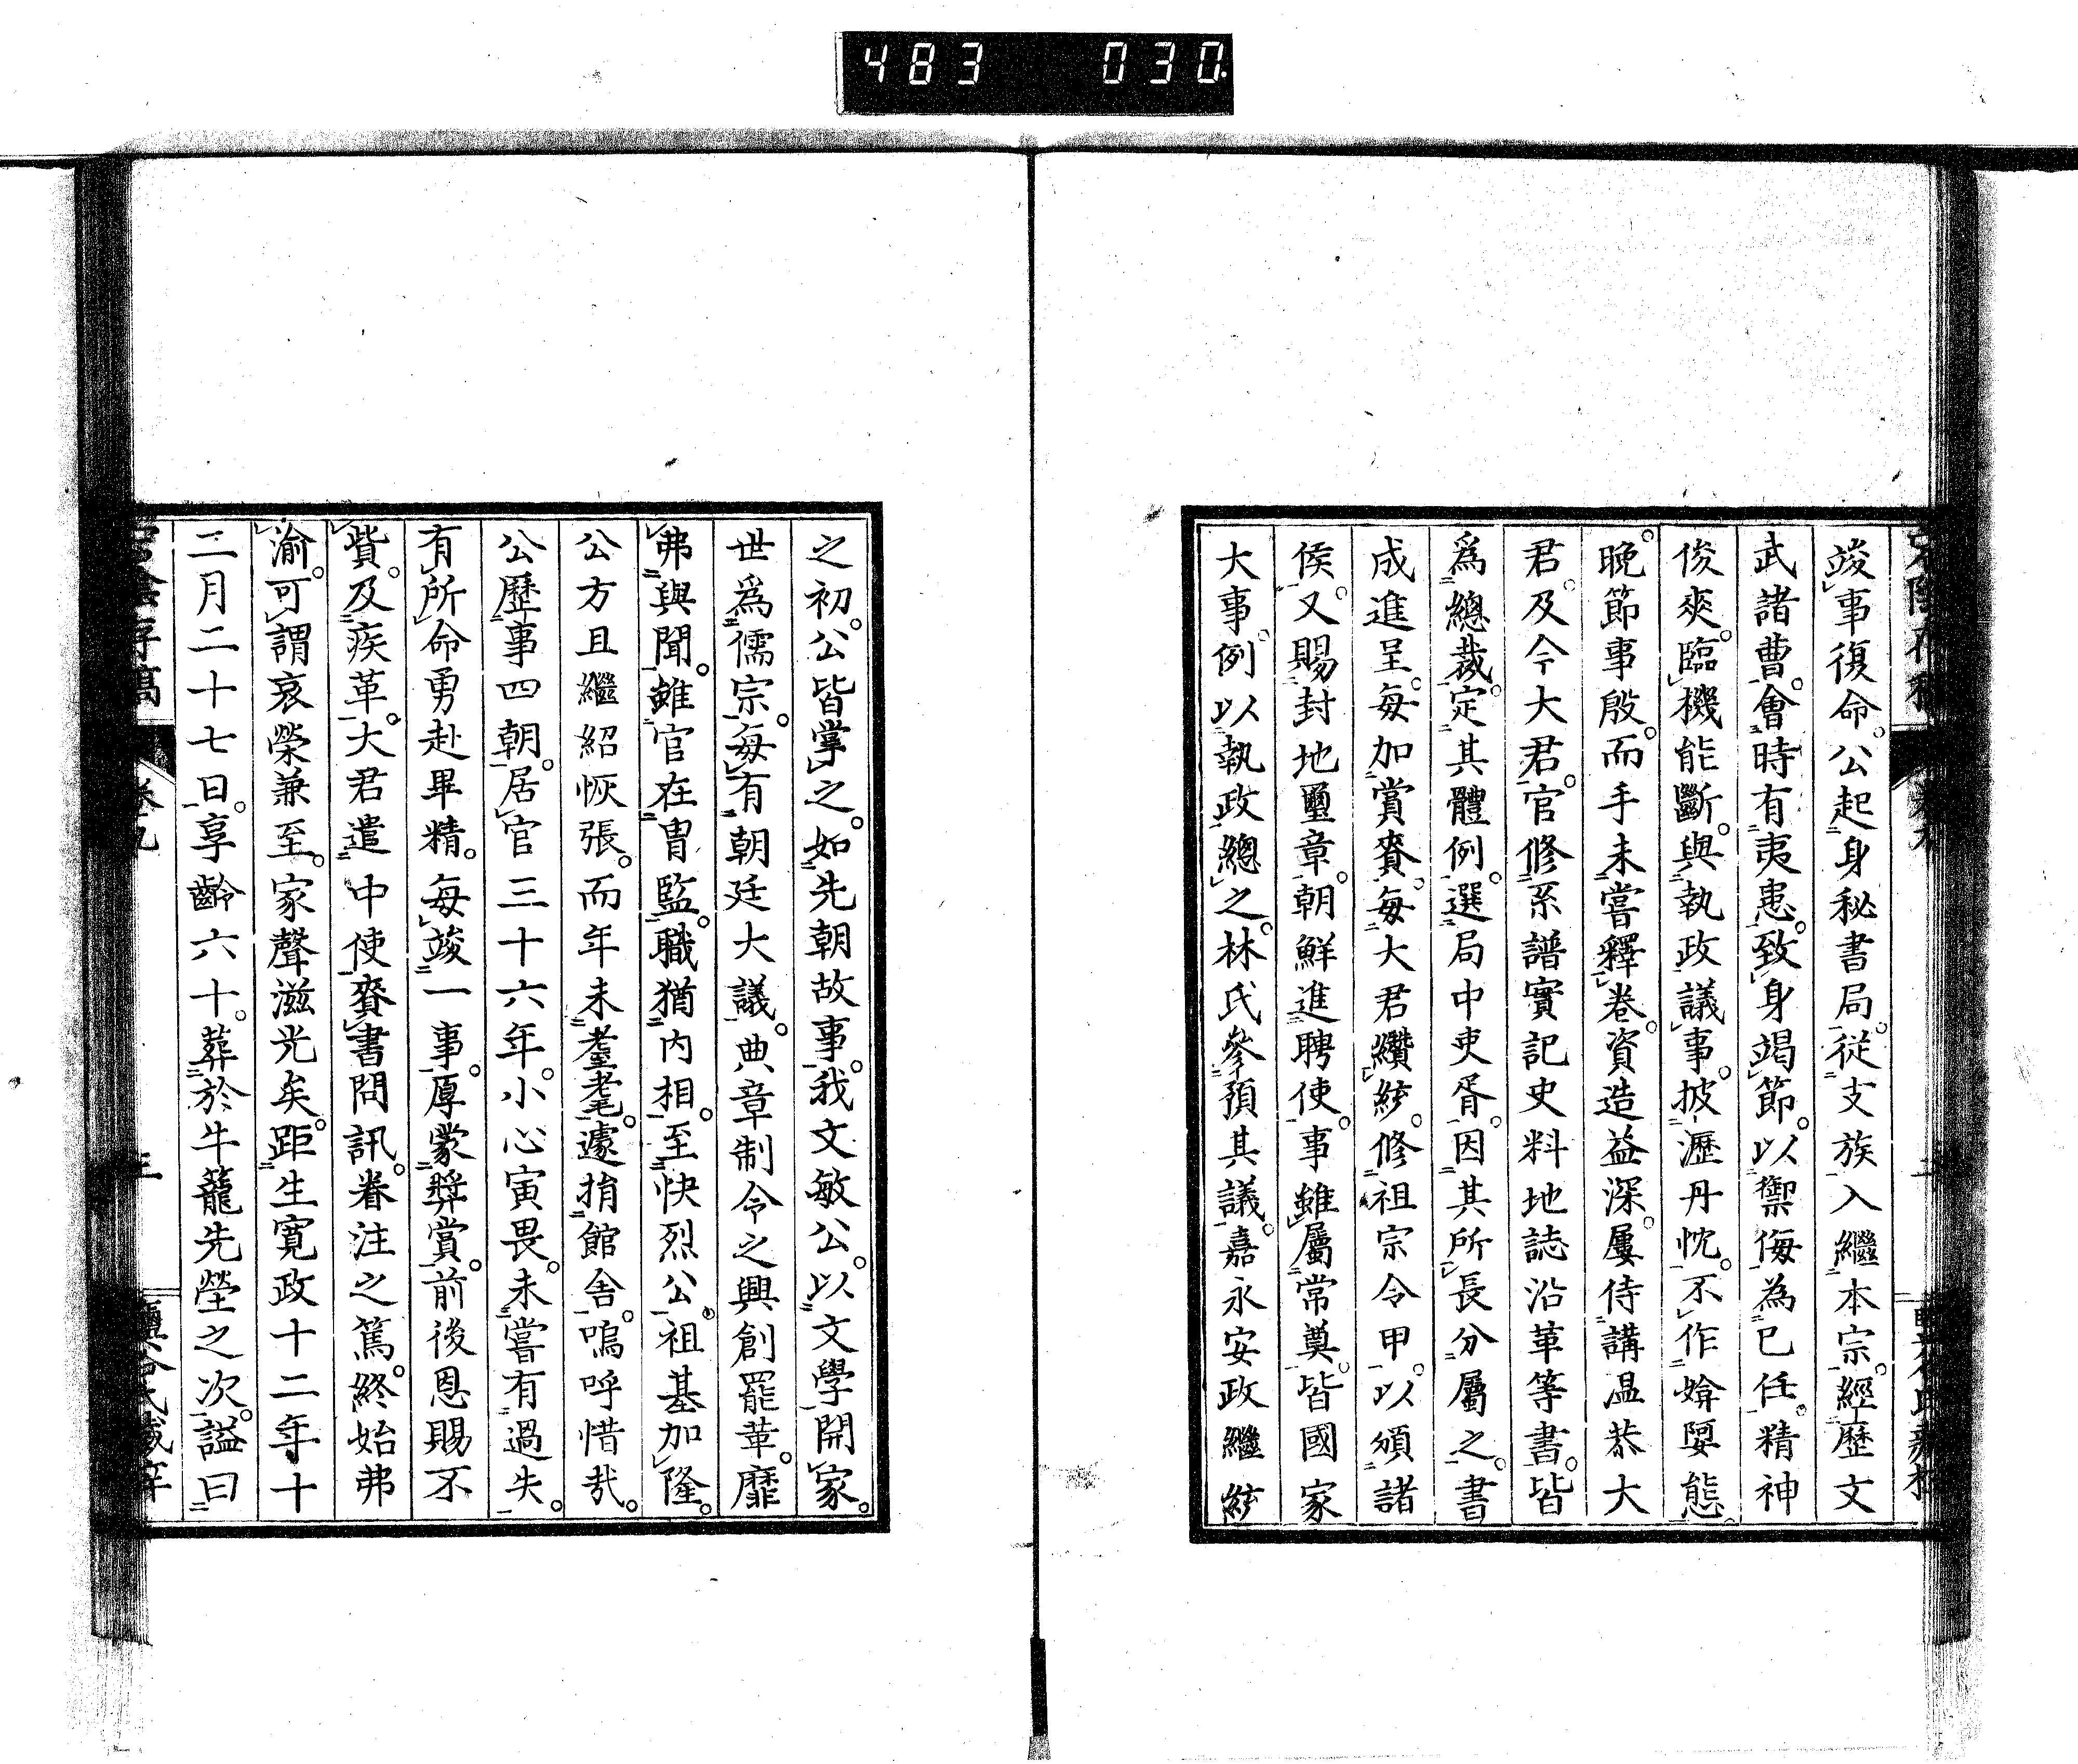 483 030
竣事復命。公起身秘書局。從支族入繼本宗。經歷文
武諸曹。會時有夷患。致身竭節。以禦侮為已任。精神
俊爽。臨機能斷。與執政議事。披瀝丹忱。不作媕娿態。
晚節事殷。而手未嘗釋卷。資造益深。屢侍講温恭大
君。及今大君。官修系譜實記史料地誌沿革等書。皆
爲總裁。定其體例。選局中吏胥。因其所長分屬之。書
成進呈。每加賞賚。每大君纘統。修祖宗令甲。以頒諸
侯。又賜封地璽章。朝鮮進聘使。事雖屬常奠。皆國家
大事。例以執政總之。林氏參預其議。嘉永安政繼統
之初。公皆掌之。如先朝故事。我文敏公。以文學開家。
世爲儒宗。每有朝廷大議。典章制令之興創罷革。靡
弗與聞。雖官在胄監。職猶内相。至快烈公。祖基加隆。
公方且繼紹恢張。而年未耋耄。遽捐館舍。嗚呼惜哉。
公歷事四朝。居官三十六年。小心寅畏。未嘗有過失。
有所命勇赴畢精。每竣一事。厚蒙奬賞。前後恩賜不
貲。及疾革。大君遣中使賚書問訊。眷注之篤。終始弗
渝。可謂哀榮兼至。家聲滋光矣。距生寛政十二年十
二月二十七日。享齡六十。葬於牛籠先塋之次。諡曰
存稿 卷九 三